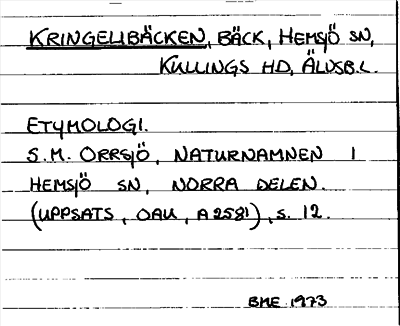 KRINGELIBÄCKEN, BÄCK, HEMSJÖ SN,
KULLINGS HD, ÄLVSB.L.
ETYMOLOGI.
S.M. ORRSJÖ, NATURNAMNEN I
HEMSJÖ SN, NORRA DELEN.
(UPPSATS, OAU, A 2581), S. 12.
BME 1973